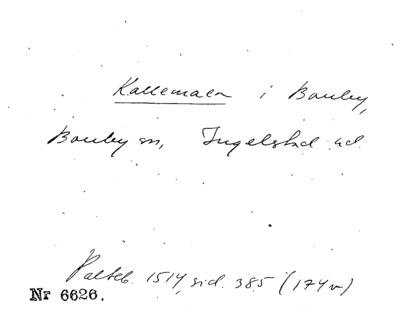 Kallemaen i Borrby,
Borrby sn, Ingelstad hd.
Palteb. 1514, sid. 385 (174v)
Nr 6626.